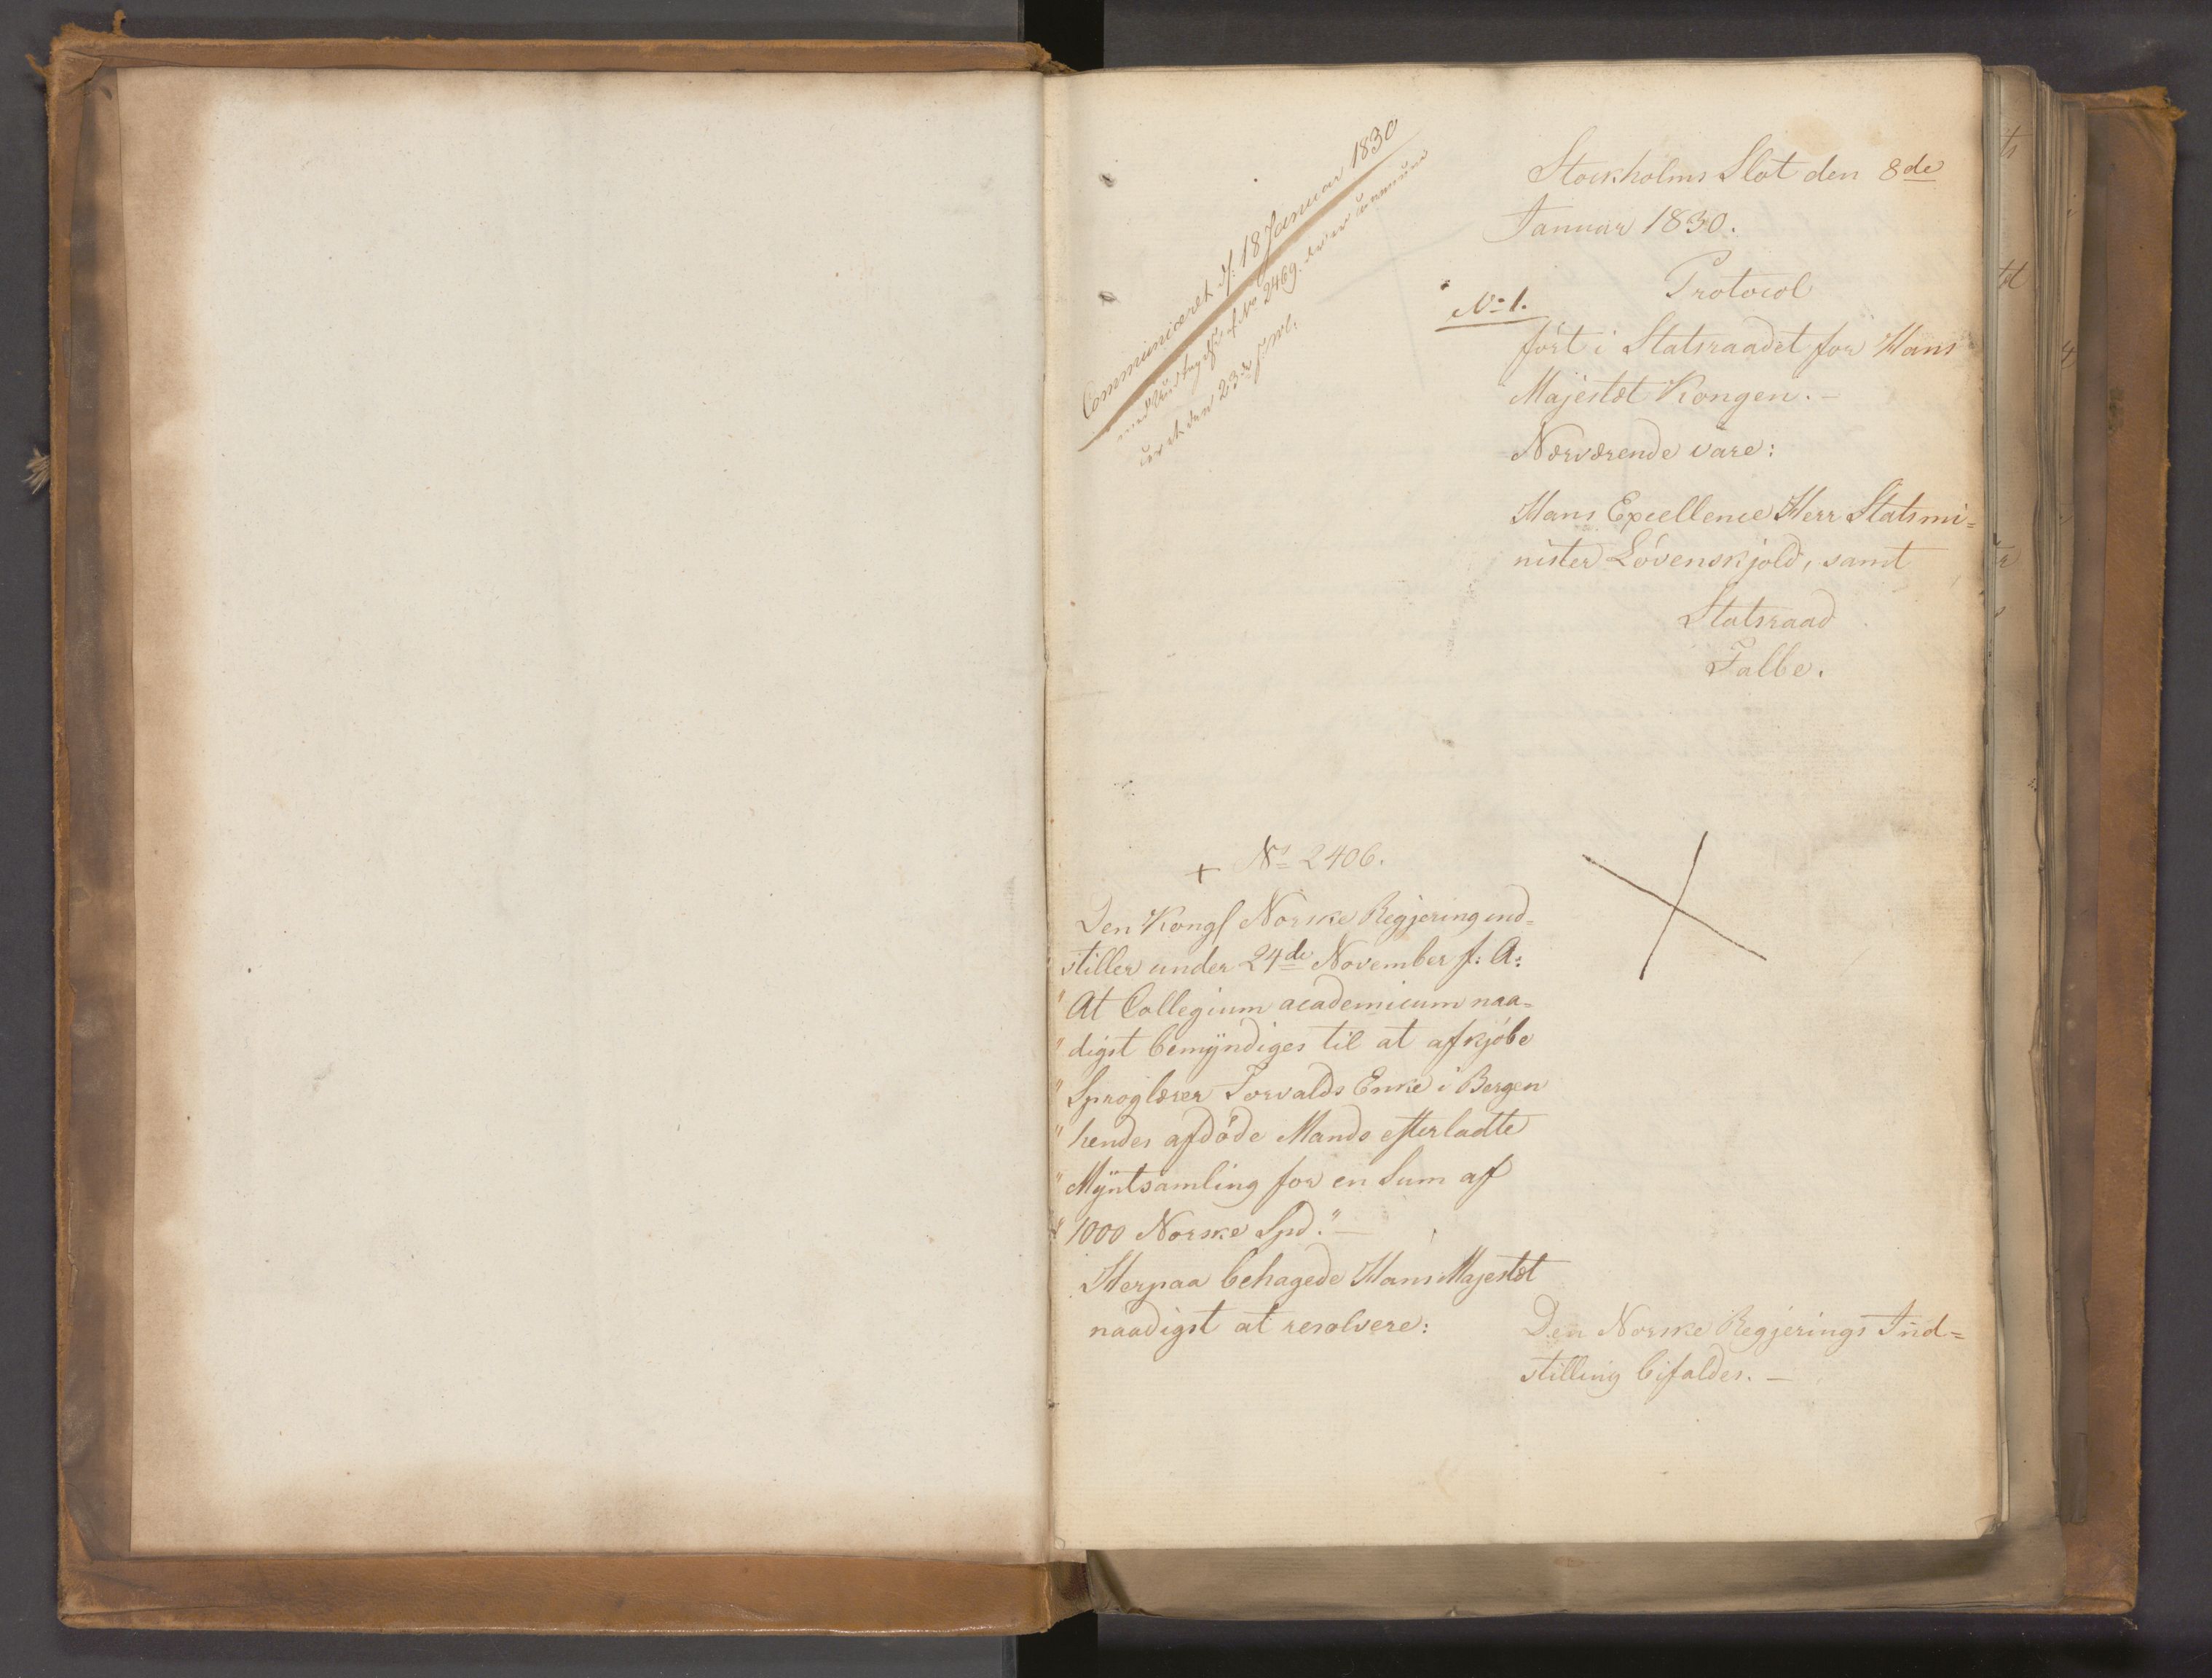 Communiceret d/: 18 Januar 1830
med Undtagelse af No 2469. der er communi
ceret den 23de
Stockholms Slot den 8de
Januar 1830.
No 1.
Protocol
fört i Statsraadet for Hans
Majestæt Kongen. –
Nærværende vare:
Hans Excellence Herr Statsmi=
nister Lövenskjold, samt
Statsraad
Falbe.
+ No 2406.
Den Kongl Norske Regjering ind=
stiller under 24de November f: A:
" At Collegium academicum naa=
" digst bemÿndiges til at afkjöbe
" Sproglærer Torvalds Enke i Bergen
" hendes afdöde Mands efterladte
" Mÿntsamling for en Sum af
" 1000 Norske Spd." –
Herpaa behagede Hans Majestæt
naadigst at resolvere:
Den Norske Regjerings Ind=
stilling bifaldes. –